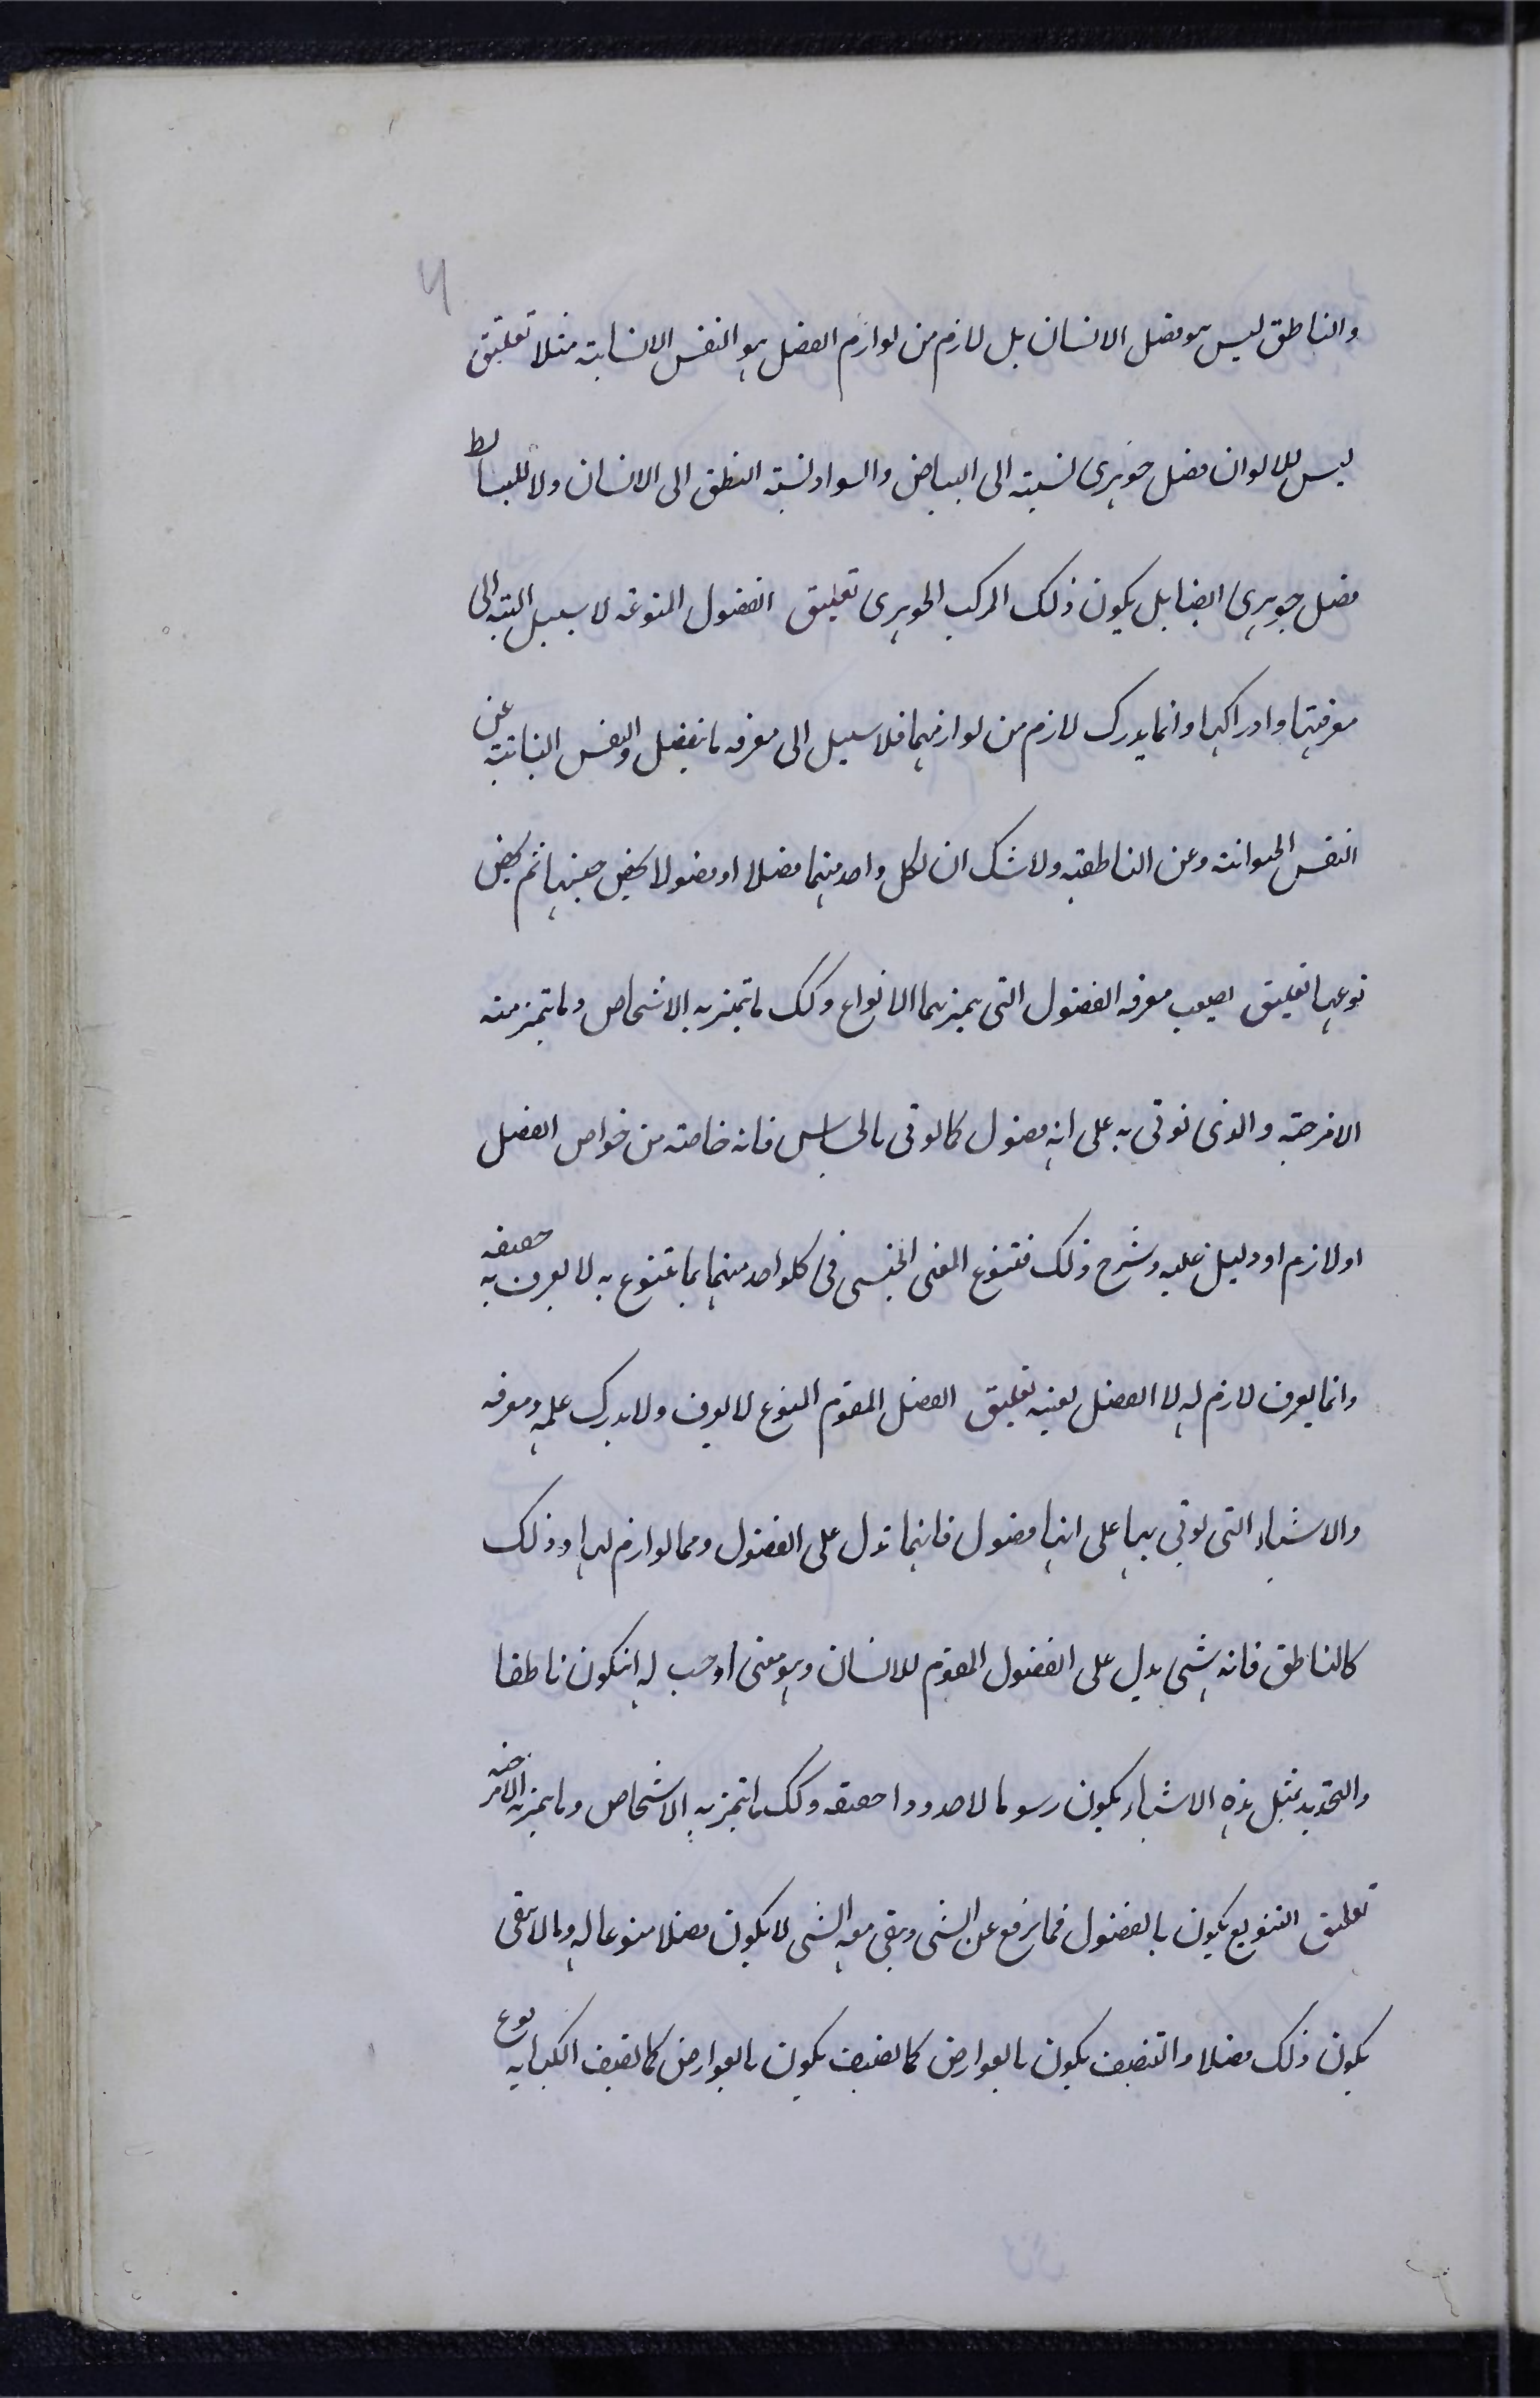 والناطق ليس هو فصل الانسان بل لازم من لوازم الفصل هو النفس الانسانية مثلا تعليق
ليس للالوان فصل جوهرى نسبته الى البياض والسواد نسبة النطق الى الانسان ولا للبسائط
فصل جوهرى ايضا بل يكون ذلك المركب الجوهرى تعليق الفصول المنوعة لا سبيل البتة الى
معرفتها وادراكها وانما يدرك لازم من لوازمها فلا سبيل الى معرفة ما يفصل والنفس النباتية عن
النفس الحيوانية وعن الناطقية ولا شك ان لكل واحد منها فصلا او فصولا يخص جنسها ثم يخص
نوعها تعليق يصعب معرفة الفصول التى يميز بها الانواع وكك ما تتميز به الاشخاص وما تتميز منه
الامزجة والذى نوتى به على انه فصول كما يوتى بالحساس فانه خاصته من خواص الفصل
او لازم او دليل عليه وشرح ذلك فتنوع المعنى الجنسى فى كلواحد منهما بما تتنوع به لا يعرف به حقيقة
وانما يعرف لازم له لا الفصل بعينه تعليق الفصل المقوم النوع لا يعرف ولا يدرك علمه ومعرفة
والاشياء التى يوتى بها على انها فصول فانها تدل على الفصول ومما لوازم لها وذلك
كالناطق فانه شى يدل على الفصول المقوم للانسان وهو معنى اوجب له انيكون ناطقا
والتحديد بمثل هذه الاشياء يكون رسوما لا حدودا حقيقة وكك ما تتميز به الاشخاص وما يتميز به الامزجة
تعليق التنويع يكون بالفصول فما يرفع عن الشى ويبقى معه الشى لا يكون فصلا منوعا له وما لا يبقى
يكون ذلك فصلا والتصنيف يكون بالعوارض كما يصنف يكون بالعوارض كما يصنف الكتابة نوع